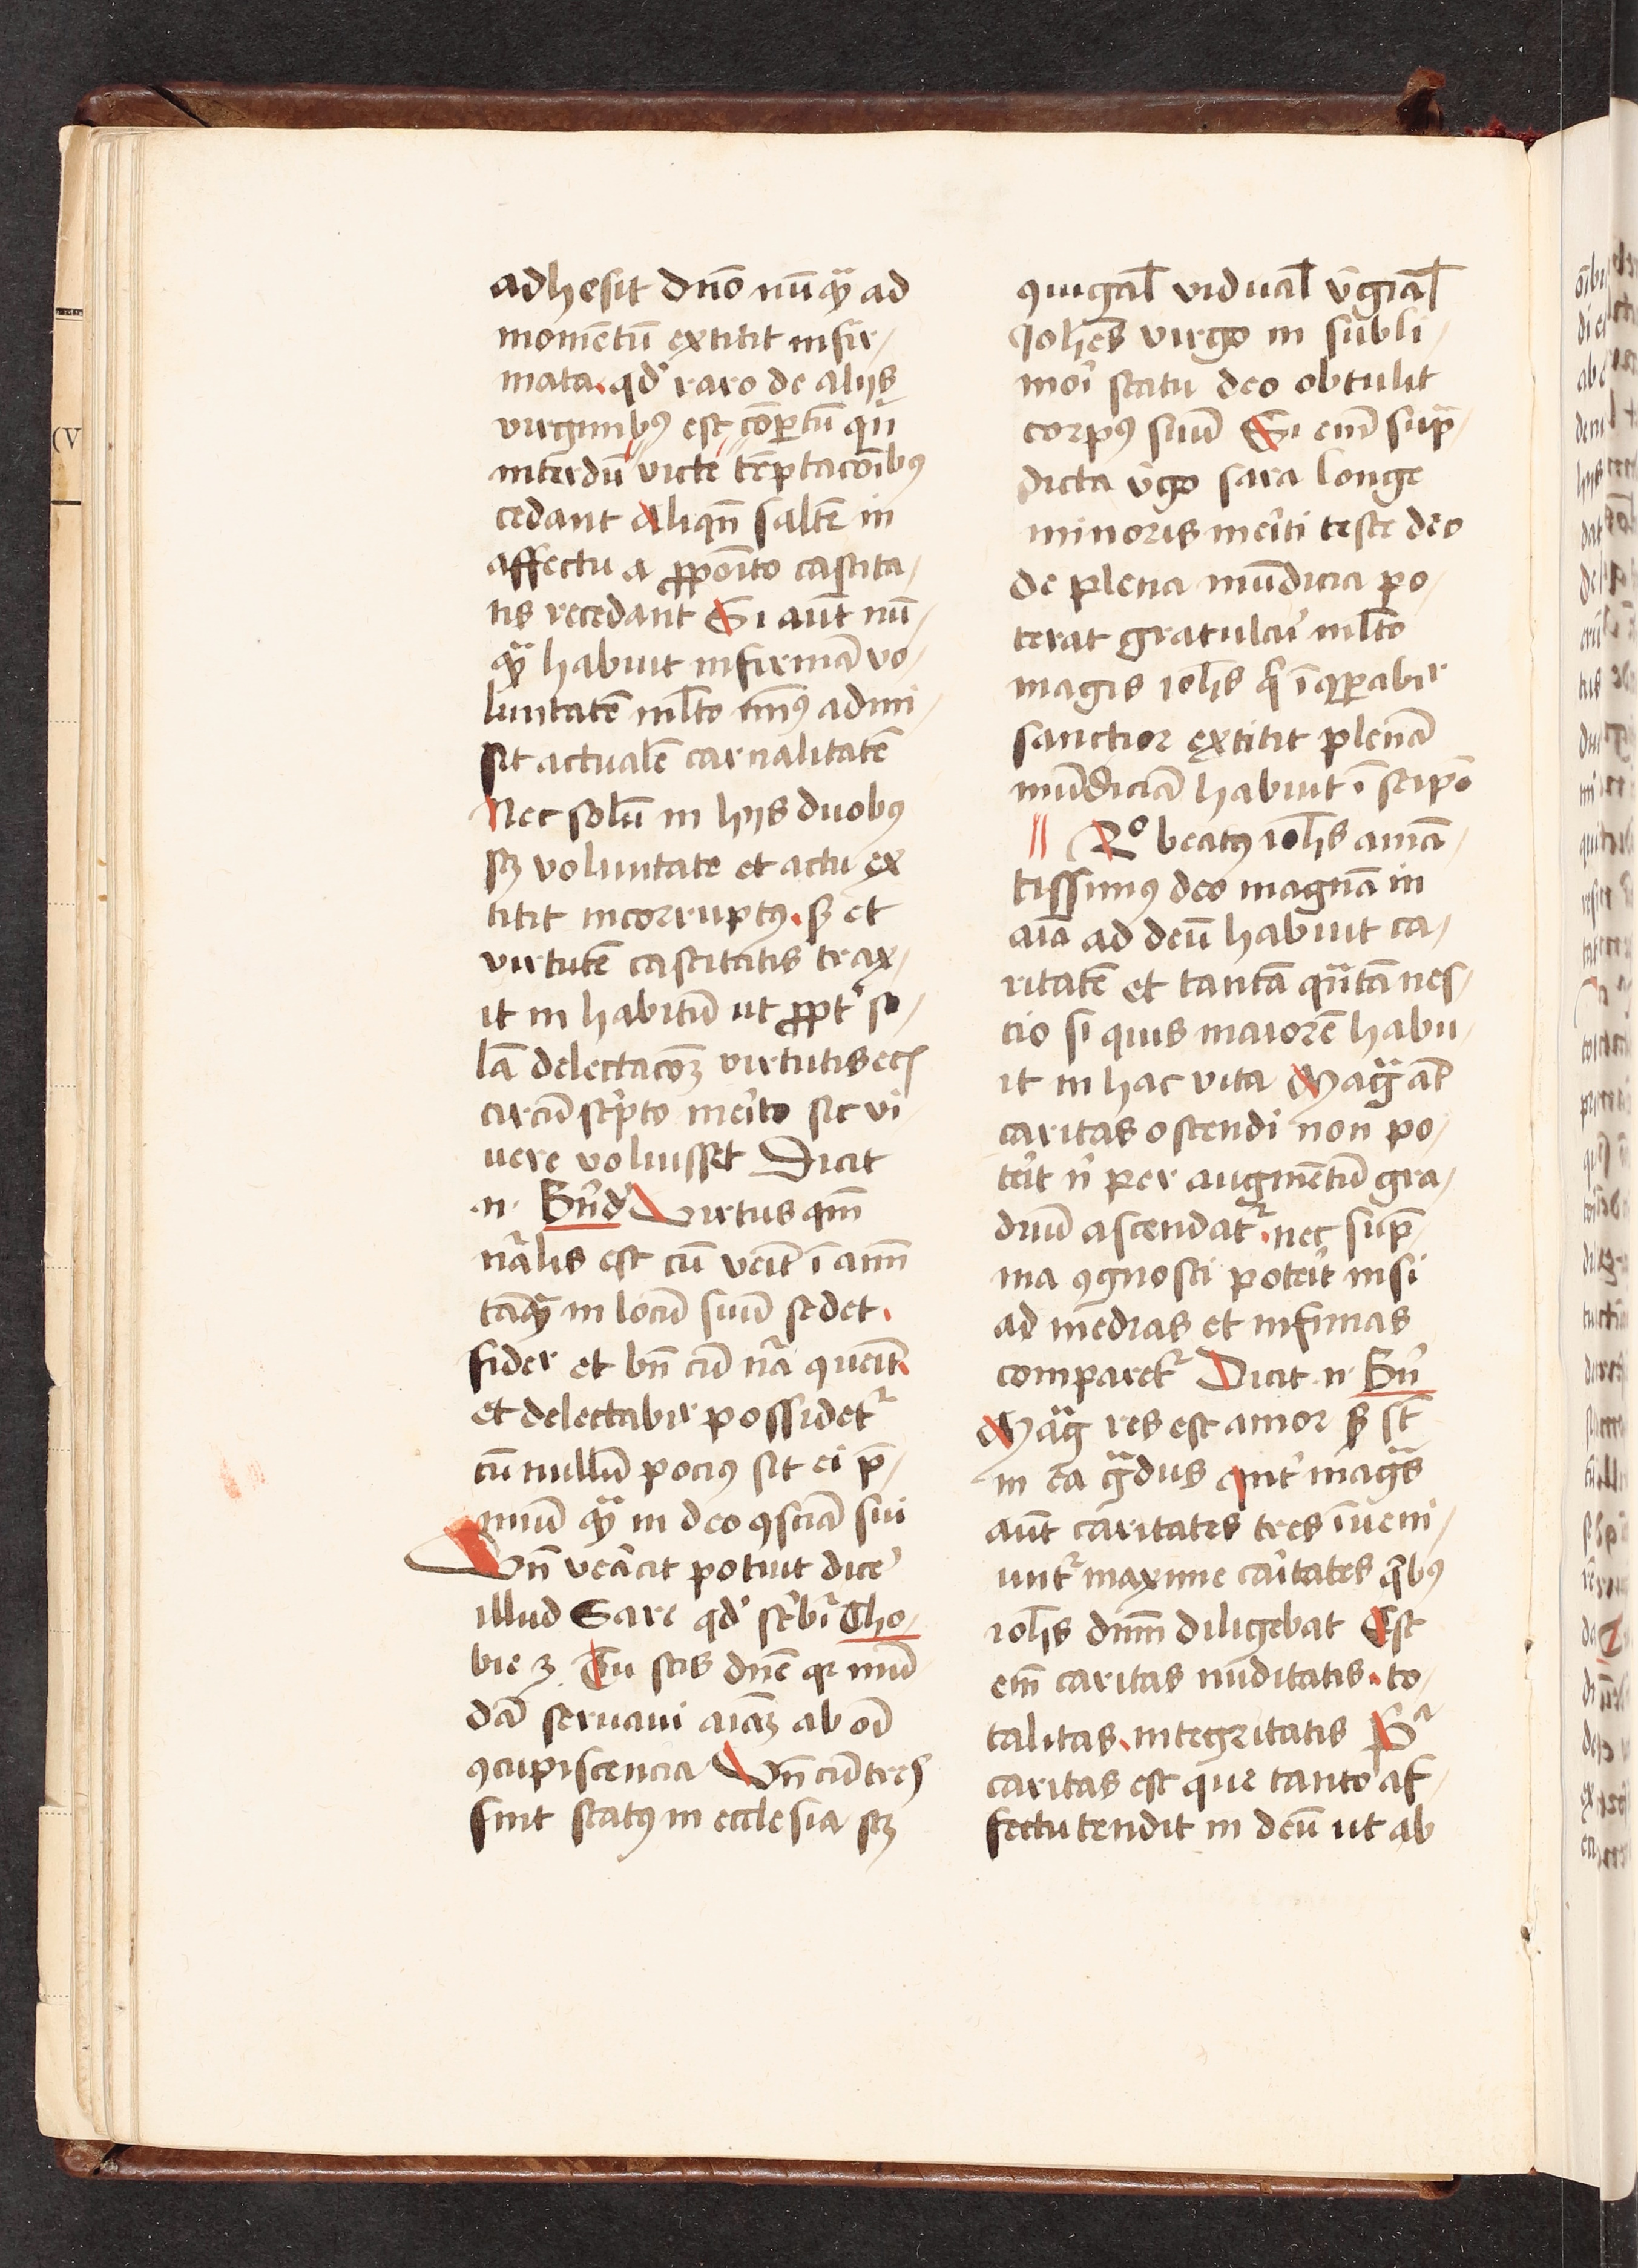 adhesit dño nūqȝ ad
momētū extitit infir/
mata. qd' raro de alijs
virginibꝰ est cōꝑtū qñ
interdū victe tēptacōibꝰ
cedant Aliqñ saltē in
affectu a ꝓpōito castita/
tis recedant Si aūt nū/
qȝ habuit infirmā vo/
luntatē mlto minꝰ admi/
sit actualē carnalitatē
Nec solū in hijs duobꝰ
sȝ voluntate et actu ex
titit incorruptꝰ. sȝ et
virtutē castitatis trax/
it in habitū ut ꝓpt' so/
lā delectacōȝ virtutis
circūscͥpto meͥto sic vi
uere voluisset Dicit
.n. Bñd' Virtus qm̄
nālis est cū veīt ī aīm
tāqȝ in locū suū sedet.
fider et bñ cū nā ꝯueīt
et delectabir possidet᷑
cū nullū pociꝰ sit ei p̄/
miū qȝ in deo ꝯsciā sui
Vñ veācit potuit dice'
illud Sare qd' scͥbi᷑ Tho/
bie 3. Tu scis dñe qꝛ mū
dā seruaui aīaȝ ab oī
ꝯcupiscencia Vñ cū tres
sint statꝰ in ecclesia scȝ
ꝯiugal vidual v͛gial
Johēs virgo in subli/
moī statu deo obtulit
corpꝰ suū Si em̄ sup̄/
dicta v͛go sara longe
minoris meͥti teste deo
de plena mūdicia po/
terat gratulari mlto
magis iohs qͥ ī
sanctior extitit plenā
mūdiciā habuit ī seip̄o
// 2o beatꝰ iohs amā/
tissimꝰ deo magnā in
aīa ad deū habuit ca/
ritatē et tantā qȝtā nes/
cio si quis maiorē habu/
it in hac vita Magᷓ aūt
caritas ostendi non po/
teīt n̄ per augmētū gra/
duū ascendat᷑. nec sup̄
ma ꝯgnosci poteīt nisi
ad medias et infimas
comparet᷑ Dicit .n. Bñ
Magᷓ res est amor sȝ st̄
in ea gᷓdus Int' magᷓs
aūt caritates tres īueni/
unt᷑ maxime caͥtates qͥbꝰ
iohs dnm̄ diligebat Est
em̄ caritas nuditatis. to/
talitas. integritatis Pͣ
caritas est que tanto af/
fectu tendit in deū ut ab